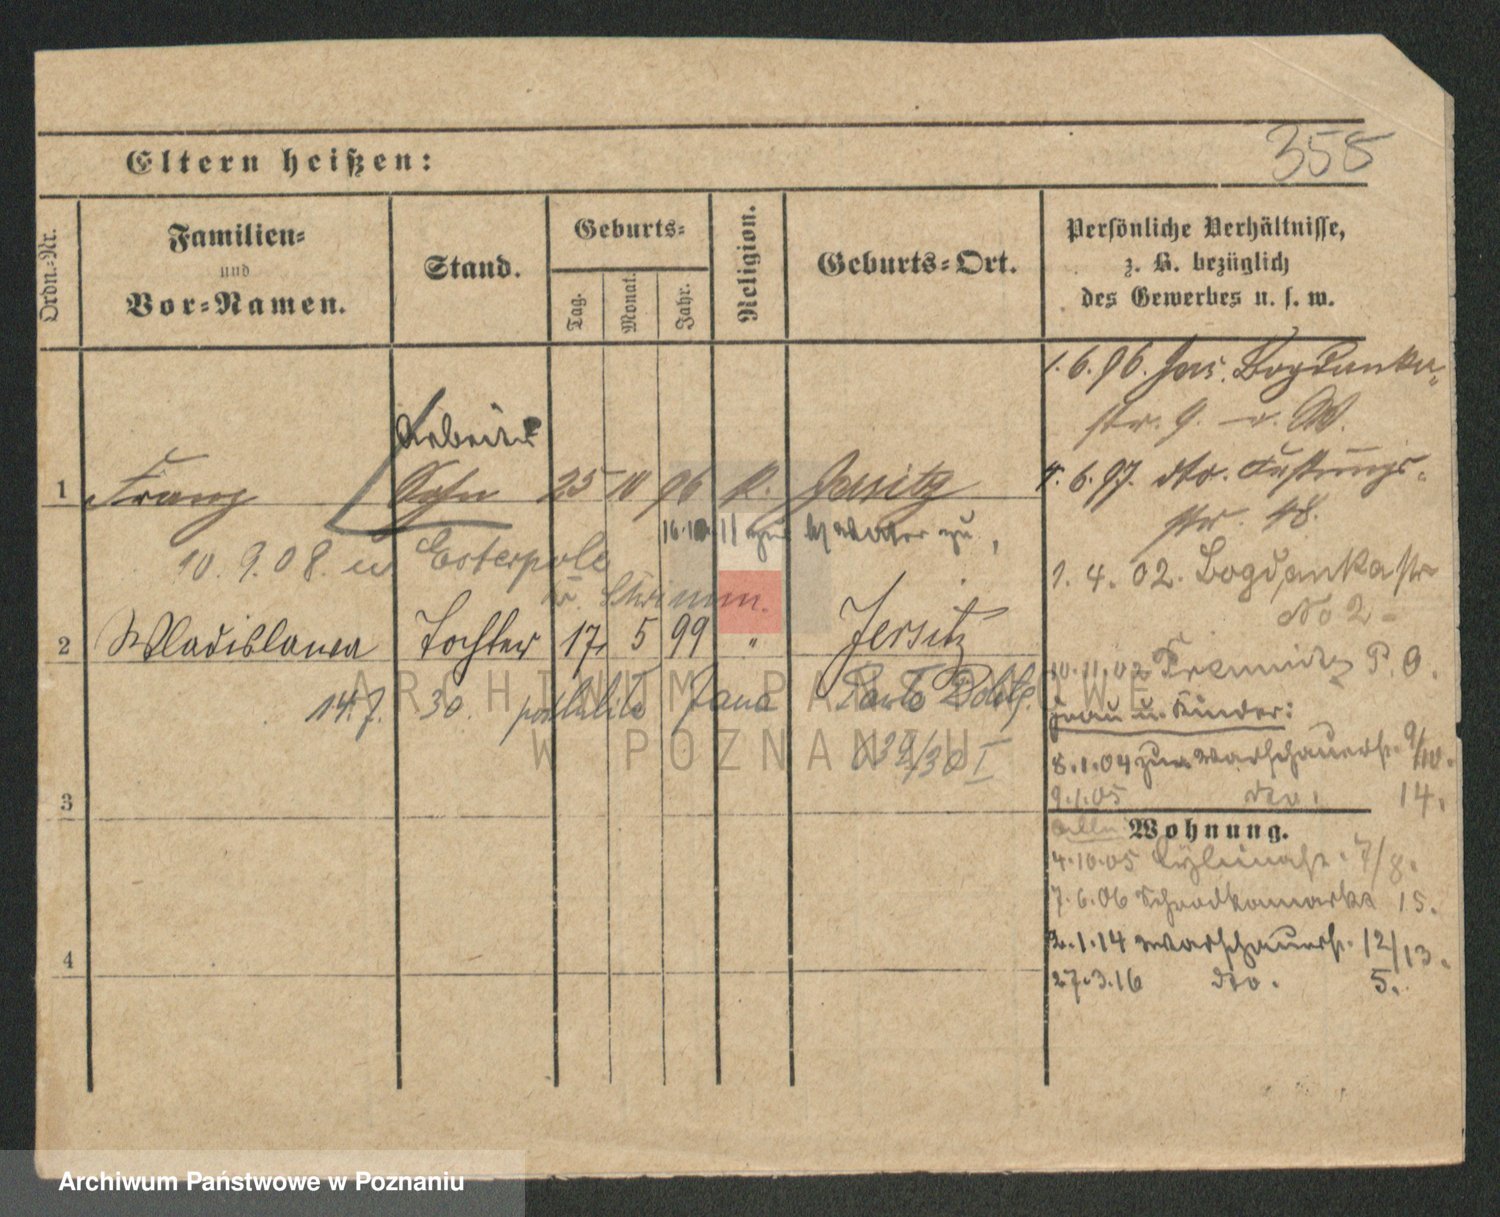 358
Eltern heißen:
Ordn.-Nr.
Familien-
und
Vor-Namen.
Stand.
Geburts-
Tag.
Monat.
Jahr.
Religion.
Geburts-Ort.
Persönliche Verhältnisse,
z. B. bezüglich
des Gewerbes u. s. w.
1.6.96. Jers. Bogdanka-
str. 9. v. W.
Arbeiter
1 Franz Sohn 25 10 96 k. Jersitz
4.6.97. dto.
str. 48.
16.10.11 zur Vater zu,
10.9.08. Esterpole
Schrimm.
1.4.02. Bogdankastr
No 2-
2 Wladislawa Tochter 17. 5 99 " Jersitz
10.11.02 P.O.
14.7. 30.
Frau u. Kinder:
8.1.04 zur Warschauerstr. 9/10.
9.1.05 dto. 14.
3
Wohnung.
4.10.05 7/8.
7.6.06 Schrodkamarkt 15.
2.1.14 Warschauerstr. 12/13.
4
27.3.16 dto. 5.
ARCHIWUM PAŃSTWOWE
W POZNANIU
Archiwum Państwowe w Poznaniu